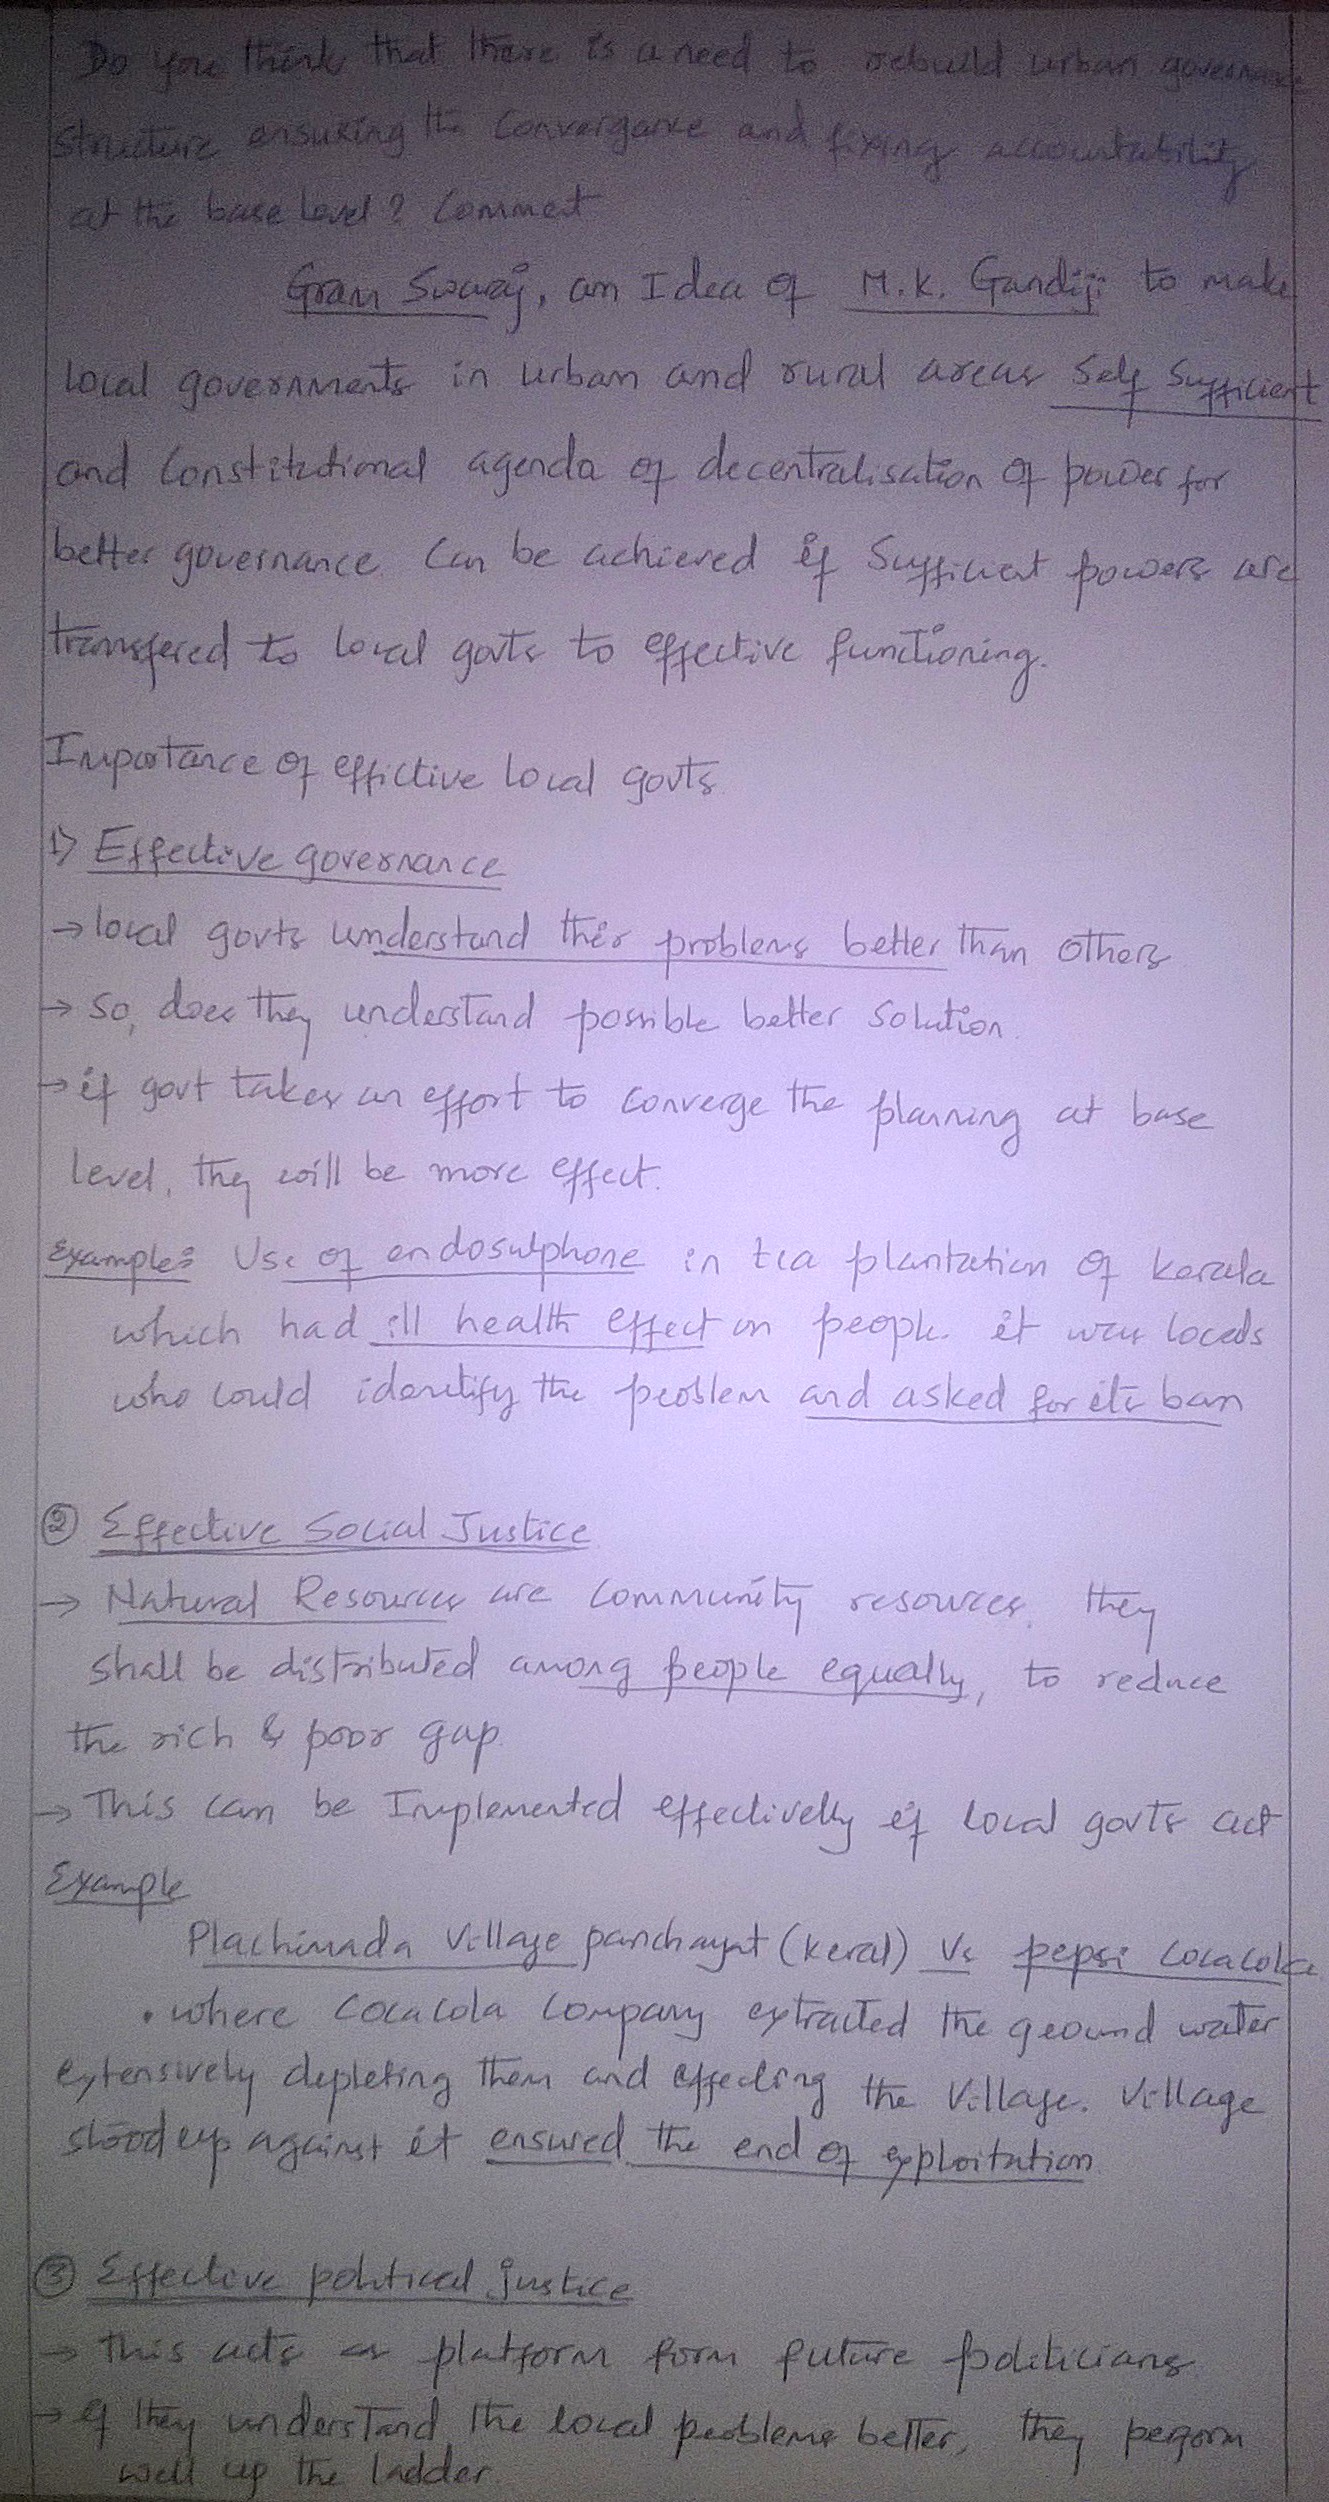 Do you think that there is a need to rebuild urban governance
structure ensuring the Convergance and fixing accountability
at the base level? Comment
Gram Swaraj, an Idea of M.K. Gandiji to make
local governments in urban and rural areas Self Sufficient
and Constitutional agenda of decentralisation of power for
better governance. Can be achieved if Sufficient powers are
transfered to local govts to effective functioning.
Importance of effictive local govts
1) Effective governance
→ local govts understand their problems better than others
→ So, does they understand possible better solution.
→ if govt takes an effort to converge the planning at base
level, they will be more effect.
Example: Use of endosulphone in tea plantation of Kerala
which had ill health effect on people. it was locals
who could identify the problem and asked for its ban
② Effective Social Justice
→ Natural Resources are community resources. they
shall be distributed among people equally, to reduce
the rich & poor gap.
→ This can be Implemented effectivelly if local govts act
Example
Plachimada Village panchayat (Keral) Vs pepsi cocacola
• where Cocacola Company extracted the ground water
extensively depleting them and effecting the Village. Village
stood up against it ensured the end of exploitation.
③ Effective political justice
→ this acts as platform form future politicians.
→ if they understand the local problems better, they perform
well up the ladder.